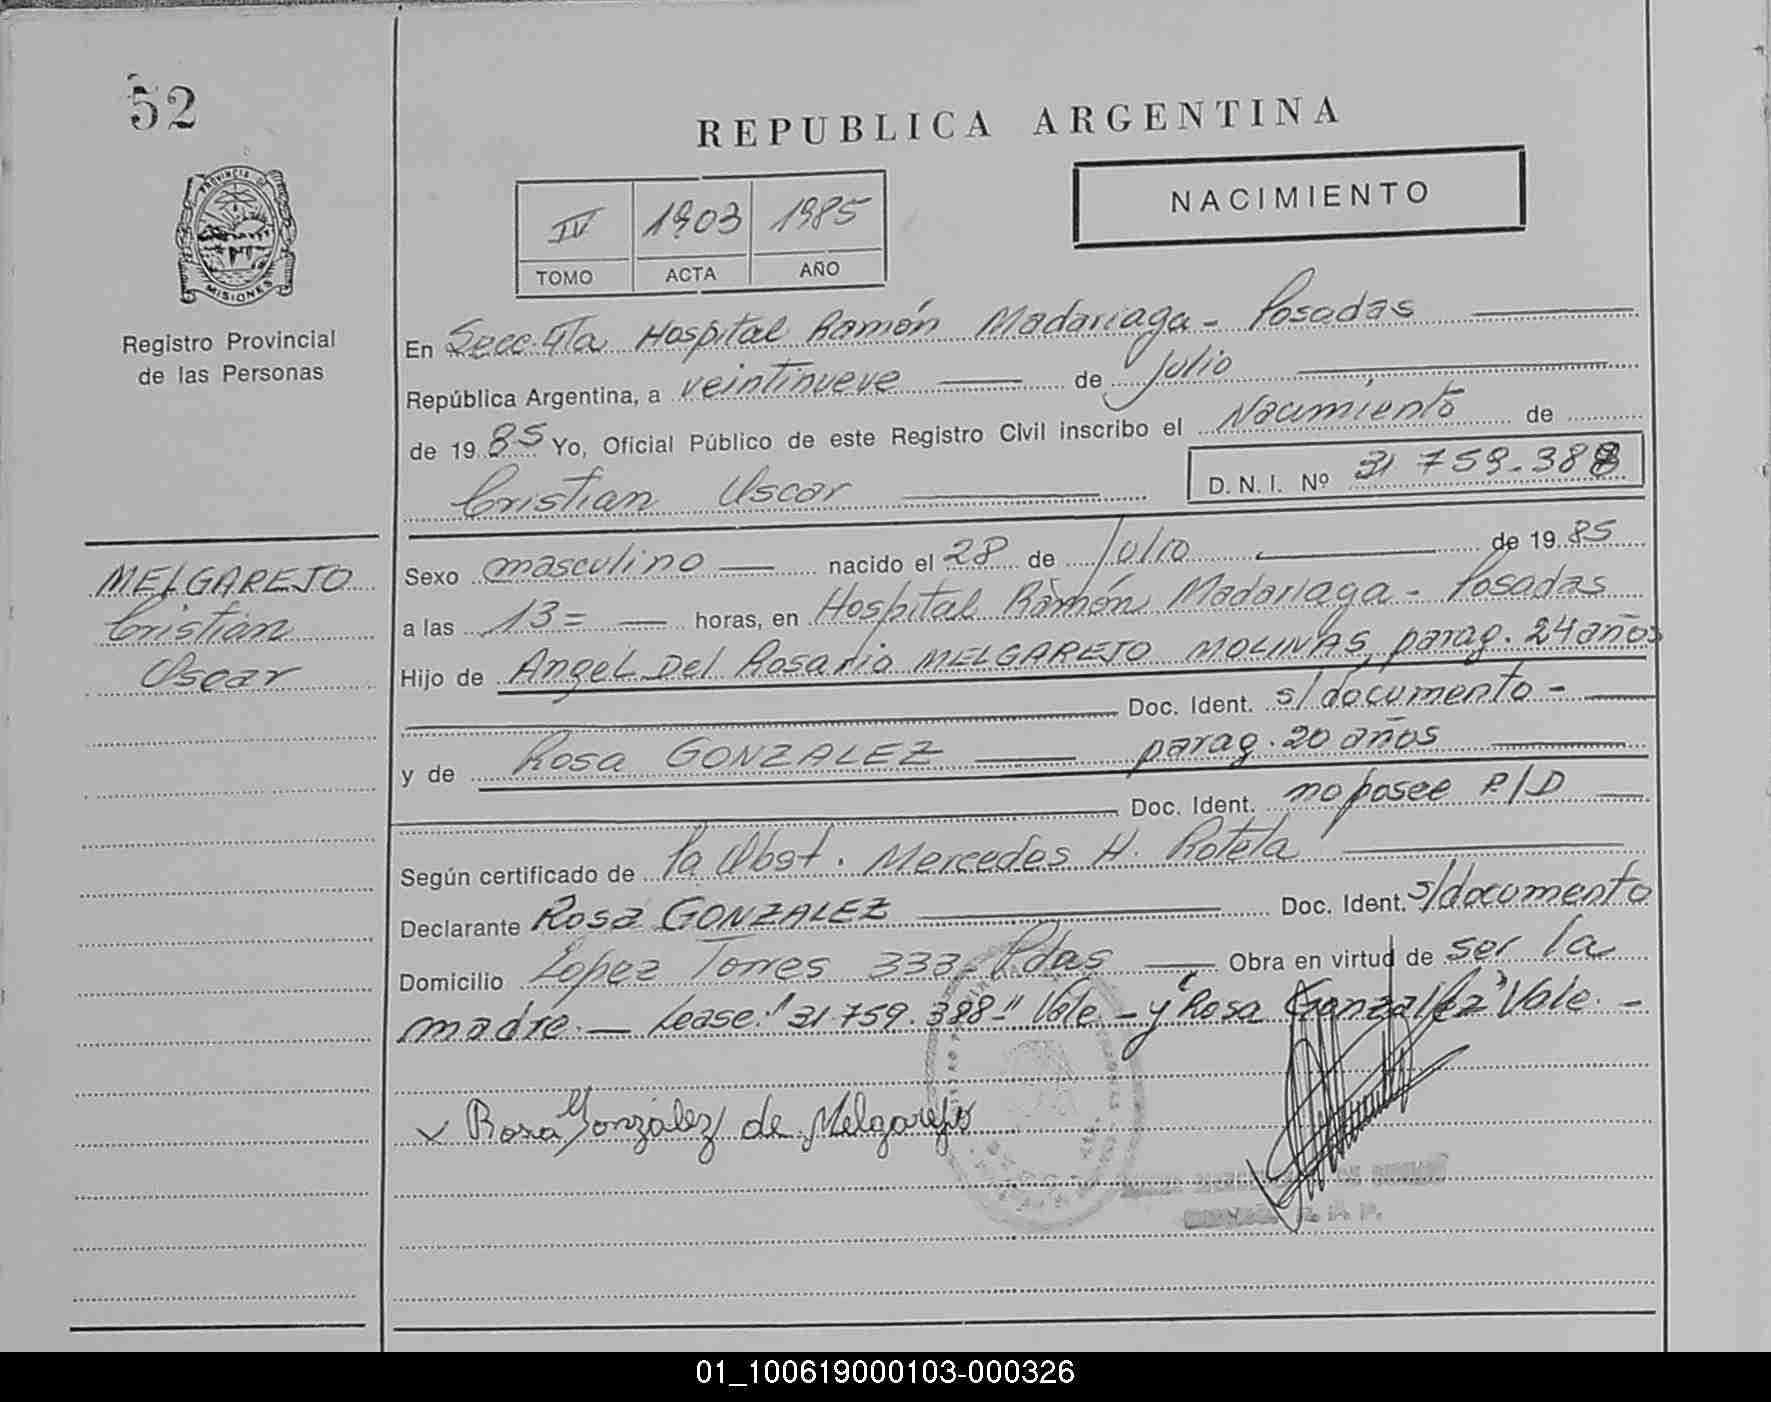 52
REPUBLICA ARGENTINA
NACIMIENTO
IV 1903 1985
TOMO ACTA AÑO
PROVINCIA DE
MISIONES
Registro Provincial
de las Personas
En Secc. 4ta Hospital Ramón Madariaga - Posadas
República Argentina, a veintinueve de Julio
de 1985 Yo, Oficial Público de este Registro Civil inscribo el Nacimiento de
Cristian Oscar D. N. I. Nº 31 759.388
MELGAREJO
Cristian
Oscar
Sexo masculino nacido el 28 de Julio de 1985
a las 13= horas, en Hospital Ramón Madariaga - Posadas
Hijo de Angel Del Rosario MELGAREJO MOLINAS, parag. 24 años
Doc. Ident. s/documento -
y de Rosa GONZALEZ parag. 20 años
Doc. Ident. no posee P/D
Según certificado de la Obst. Mercedes H. Rotela
Declarante Rosa GONZALEZ Doc. Ident. s/documento
Domicilio Lopez Torres 333 - Pdas Obra en virtud de ser la
madre. - Lease: "31.759.388" Vale - y "Rosa Gonzalez" Vale. -
x Rosa González de Melgarejo
01_100619000103-000326